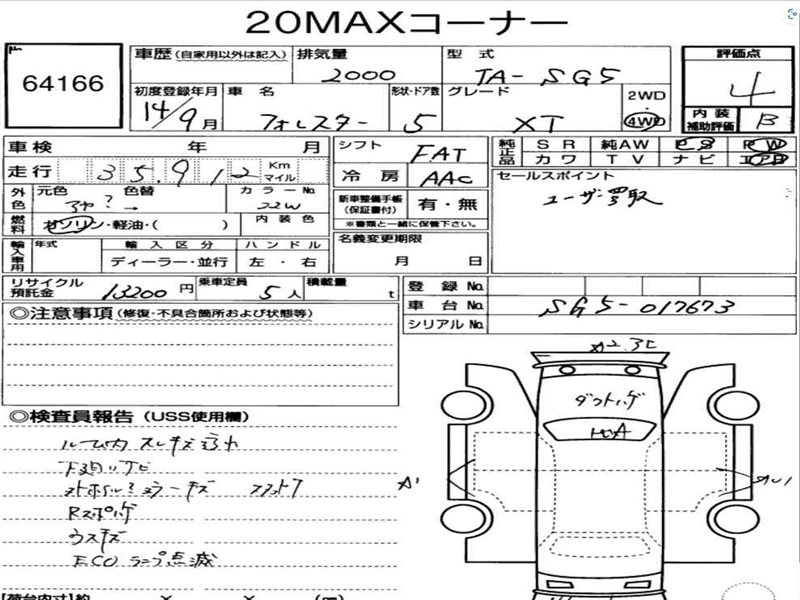 20MAXコーナー
64166
車歴 (自家用以外は記入) 排気量 型式 評価点
2000 TA-SG5 4
初度登録年月 車名 形状・ドア数 グレード 2WD・4WD
14/9月 フォレスター 5 XT
内装補助評価 B
車検 年 月 シフト FAT
純正品 SR 純AW PS PW
カワ TV ナビ エアB
走行 35,912 Km マイル
冷房 AAC
セールスポイント
ユーザー買取
外色 元色 色替 カラーNo.
? → 22W
新車整備手帳(保証書付) 有・無
※書類と一緒に保管下さい。
燃料 ガソリン・軽油・( ) 内装色
名義変更期限
月 日
輸入車用 年式 輸入区分 ハンドル
ディーラー・並行 左・右
リサイクル預託金 13200円 乗車定員 5人 積載量 t
登録No.
車台No. SG5-017673
シリアルNo.
◎注意事項(修復・不具合箇所および状態等)
◎検査員報告(USS使用欄)
ルーム内スレキズ汚れ
下廻りサビ
ECOランプ点滅
A1